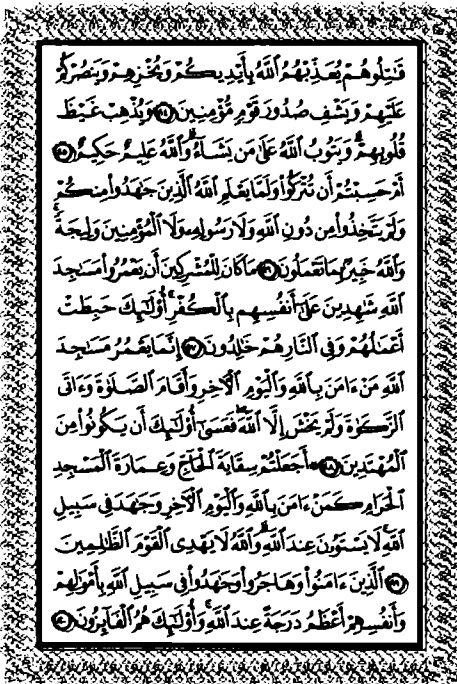 قَٰتِلُوهُمْ يُعَذِّبْهُمُ ٱللَّهُ بِأَيْدِيكُمْ وَيُخْزِهِمْ وَيَنصُرْكُمْ
عَلَيْهِمْ وَيَشْفِ صُدُورَ قَوْمٍ مُّؤْمِنِينَ ۝١٤ وَيُذْهِبْ غَيْظَ
قُلُوبِهِمْ ۗ وَيَتُوبُ ٱللَّهُ عَلَىٰ مَن يَشَآءُ ۗ وَٱللَّهُ عَلِيمٌ حَكِيمٌ ۝١٥
أَمْ حَسِبْتُمْ أَن تُتْرَكُوا۟ وَلَمَّا يَعْلَمِ ٱللَّهُ ٱلَّذِينَ جَٰهَدُوا۟ مِنكُمْ
وَلَمْ يَتَّخِذُوا۟ مِن دُونِ ٱللَّهِ وَلَا رَسُولِهِۦ وَلَا ٱلْمُؤْمِنِينَ وَلِيجَةً ۚ
وَٱللَّهُ خَبِيرٌۢ بِمَا تَعْمَلُونَ ۝١٦ مَا كَانَ لِلْمُشْرِكِينَ أَن يَعْمُرُوا۟ مَسَٰجِدَ
ٱللَّهِ شَٰهِدِينَ عَلَىٰٓ أَنفُسِهِم بِٱلْكُفْرِ ۚ أُو۟لَٰٓئِكَ حَبِطَتْ
أَعْمَٰلُهُمْ وَفِى ٱلنَّارِ هُمْ خَٰلِدُونَ ۝١٧ إِنَّمَا يَعْمُرُ مَسَٰجِدَ
ٱللَّهِ مَنْ ءَامَنَ بِٱللَّهِ وَٱلْيَوْمِ ٱلْءَاخِرِ وَأَقَامَ ٱلصَّلَوٰةَ وَءَاتَى
ٱلزَّكَوٰةَ وَلَمْ يَخْشَ إِلَّا ٱللَّهَ ۖ فَعَسَىٰٓ أُو۟لَٰٓئِكَ أَن يَكُونُوا۟ مِنَ
ٱلْمُهْتَدِينَ ۝١٨ ۞ أَجَعَلْتُمْ سِقَايَةَ ٱلْحَآجِّ وَعِمَارَةَ ٱلْمَسْجِدِ
ٱلْحَرَامِ كَمَنْ ءَامَنَ بِٱللَّهِ وَٱلْيَوْمِ ٱلْءَاخِرِ وَجَٰهَدَ فِى سَبِيلِ
ٱللَّهِ ۚ لَا يَسْتَوُۥنَ عِندَ ٱللَّهِ ۗ وَٱللَّهُ لَا يَهْدِى ٱلْقَوْمَ ٱلظَّٰلِمِينَ
۝١٩ ٱلَّذِينَ ءَامَنُوا۟ وَهَاجَرُوا۟ وَجَٰهَدُوا۟ فِى سَبِيلِ ٱللَّهِ بِأَمْوَٰلِهِمْ
وَأَنفُسِهِمْ أَعْظَمُ دَرَجَةً عِندَ ٱللَّهِ ۚ وَأُو۟لَٰٓئِكَ هُمُ ٱلْفَآئِزُونَ ۝٢٠